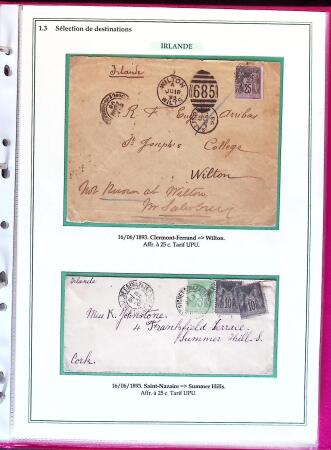 1.3 Sélection de destinations
IRLANDE
Irlande
WILTON
JU 18
685
25
R. F.
St Joseph's
College
Wilton
Not Known at Wilton
Nr Salisbury
16/06/1893. Clermont-Ferrand => Wilton.
Affr. à 25 c. Tarif UPU.
Irlande
10
10
Miss K. Johnstone
4 Frankfield Terrace
Summer Hill S.
Cork.
16/06/1893. Saint-Nazaire => Summer Hills.
Affr. à 25 c. Tarif UPU.